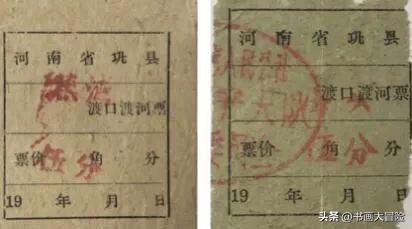 河南省巩县
渡口渡河票
票价 伍 角 分 分
19 年 月 日
河南省巩县
人民公社
大队
渡口渡河票
票价 伍 角 分 分
19 年 月 日
头条 @书画大冒险